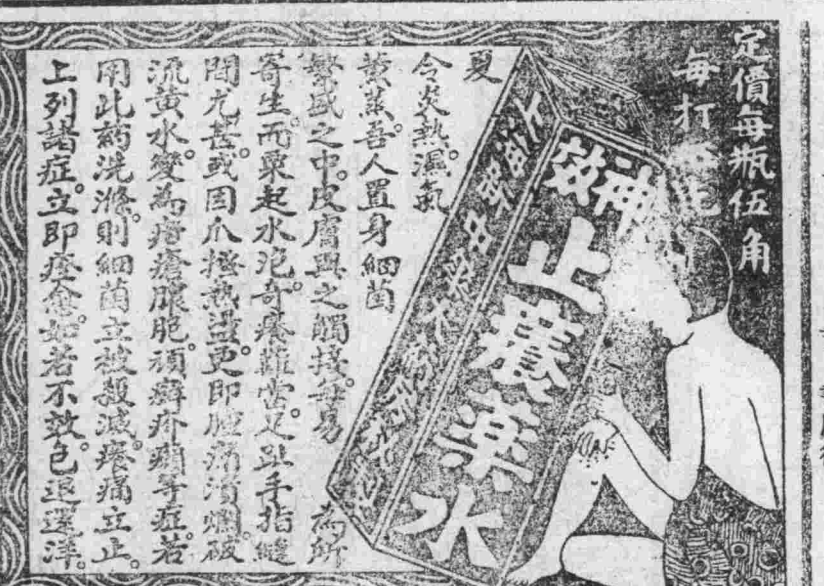 定價每瓶伍角
每打
神效
止癢藥水
夏
令炎熱。濕氣
薰蒸。吾人置身細菌
繁盛之中。皮膚與之觸接。每易為所
寄生。而粟起水泡。奇癢難當。足趾手指縫
間尤甚。或因爪搔熱燙。更即腫痛潰爛。破
流黃水。變為痘瘡膿胞。頑癬疥癩等症。若
用此葯洗滌。則細菌立被殺滅。癢痛立止。
上列諸症。立即痊愈。如若不效。包退還洋。